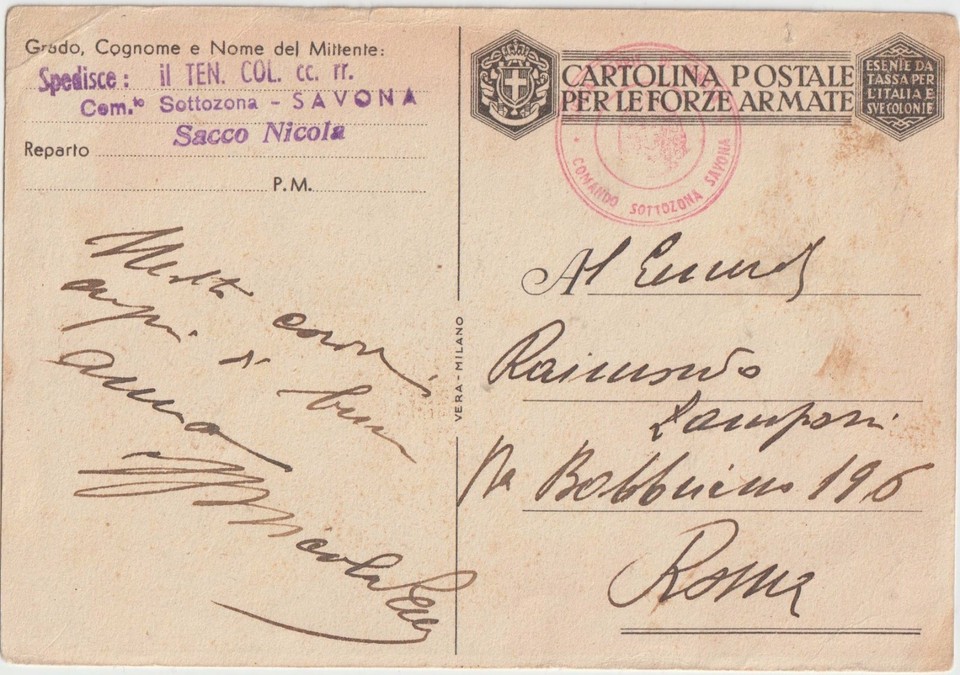 Grado, Cognome e Nome del Mittente:
Spedisce: il TEN. COL. cc. rr.
Com.to Sottozona - SAVONA
Sacco Nicola
Reparto
P.M.
Molti
auguri di buon
anno
Nicola
VERA - MILANO
CARTOLINA POSTALE
PER LE FORZE ARMATE
ESENTE DA
TASSA PER
L'ITALIA E
SVE COLONIE
COMANDO SOTTOZONA SAVONA
Al
Raimondo
196
Roma